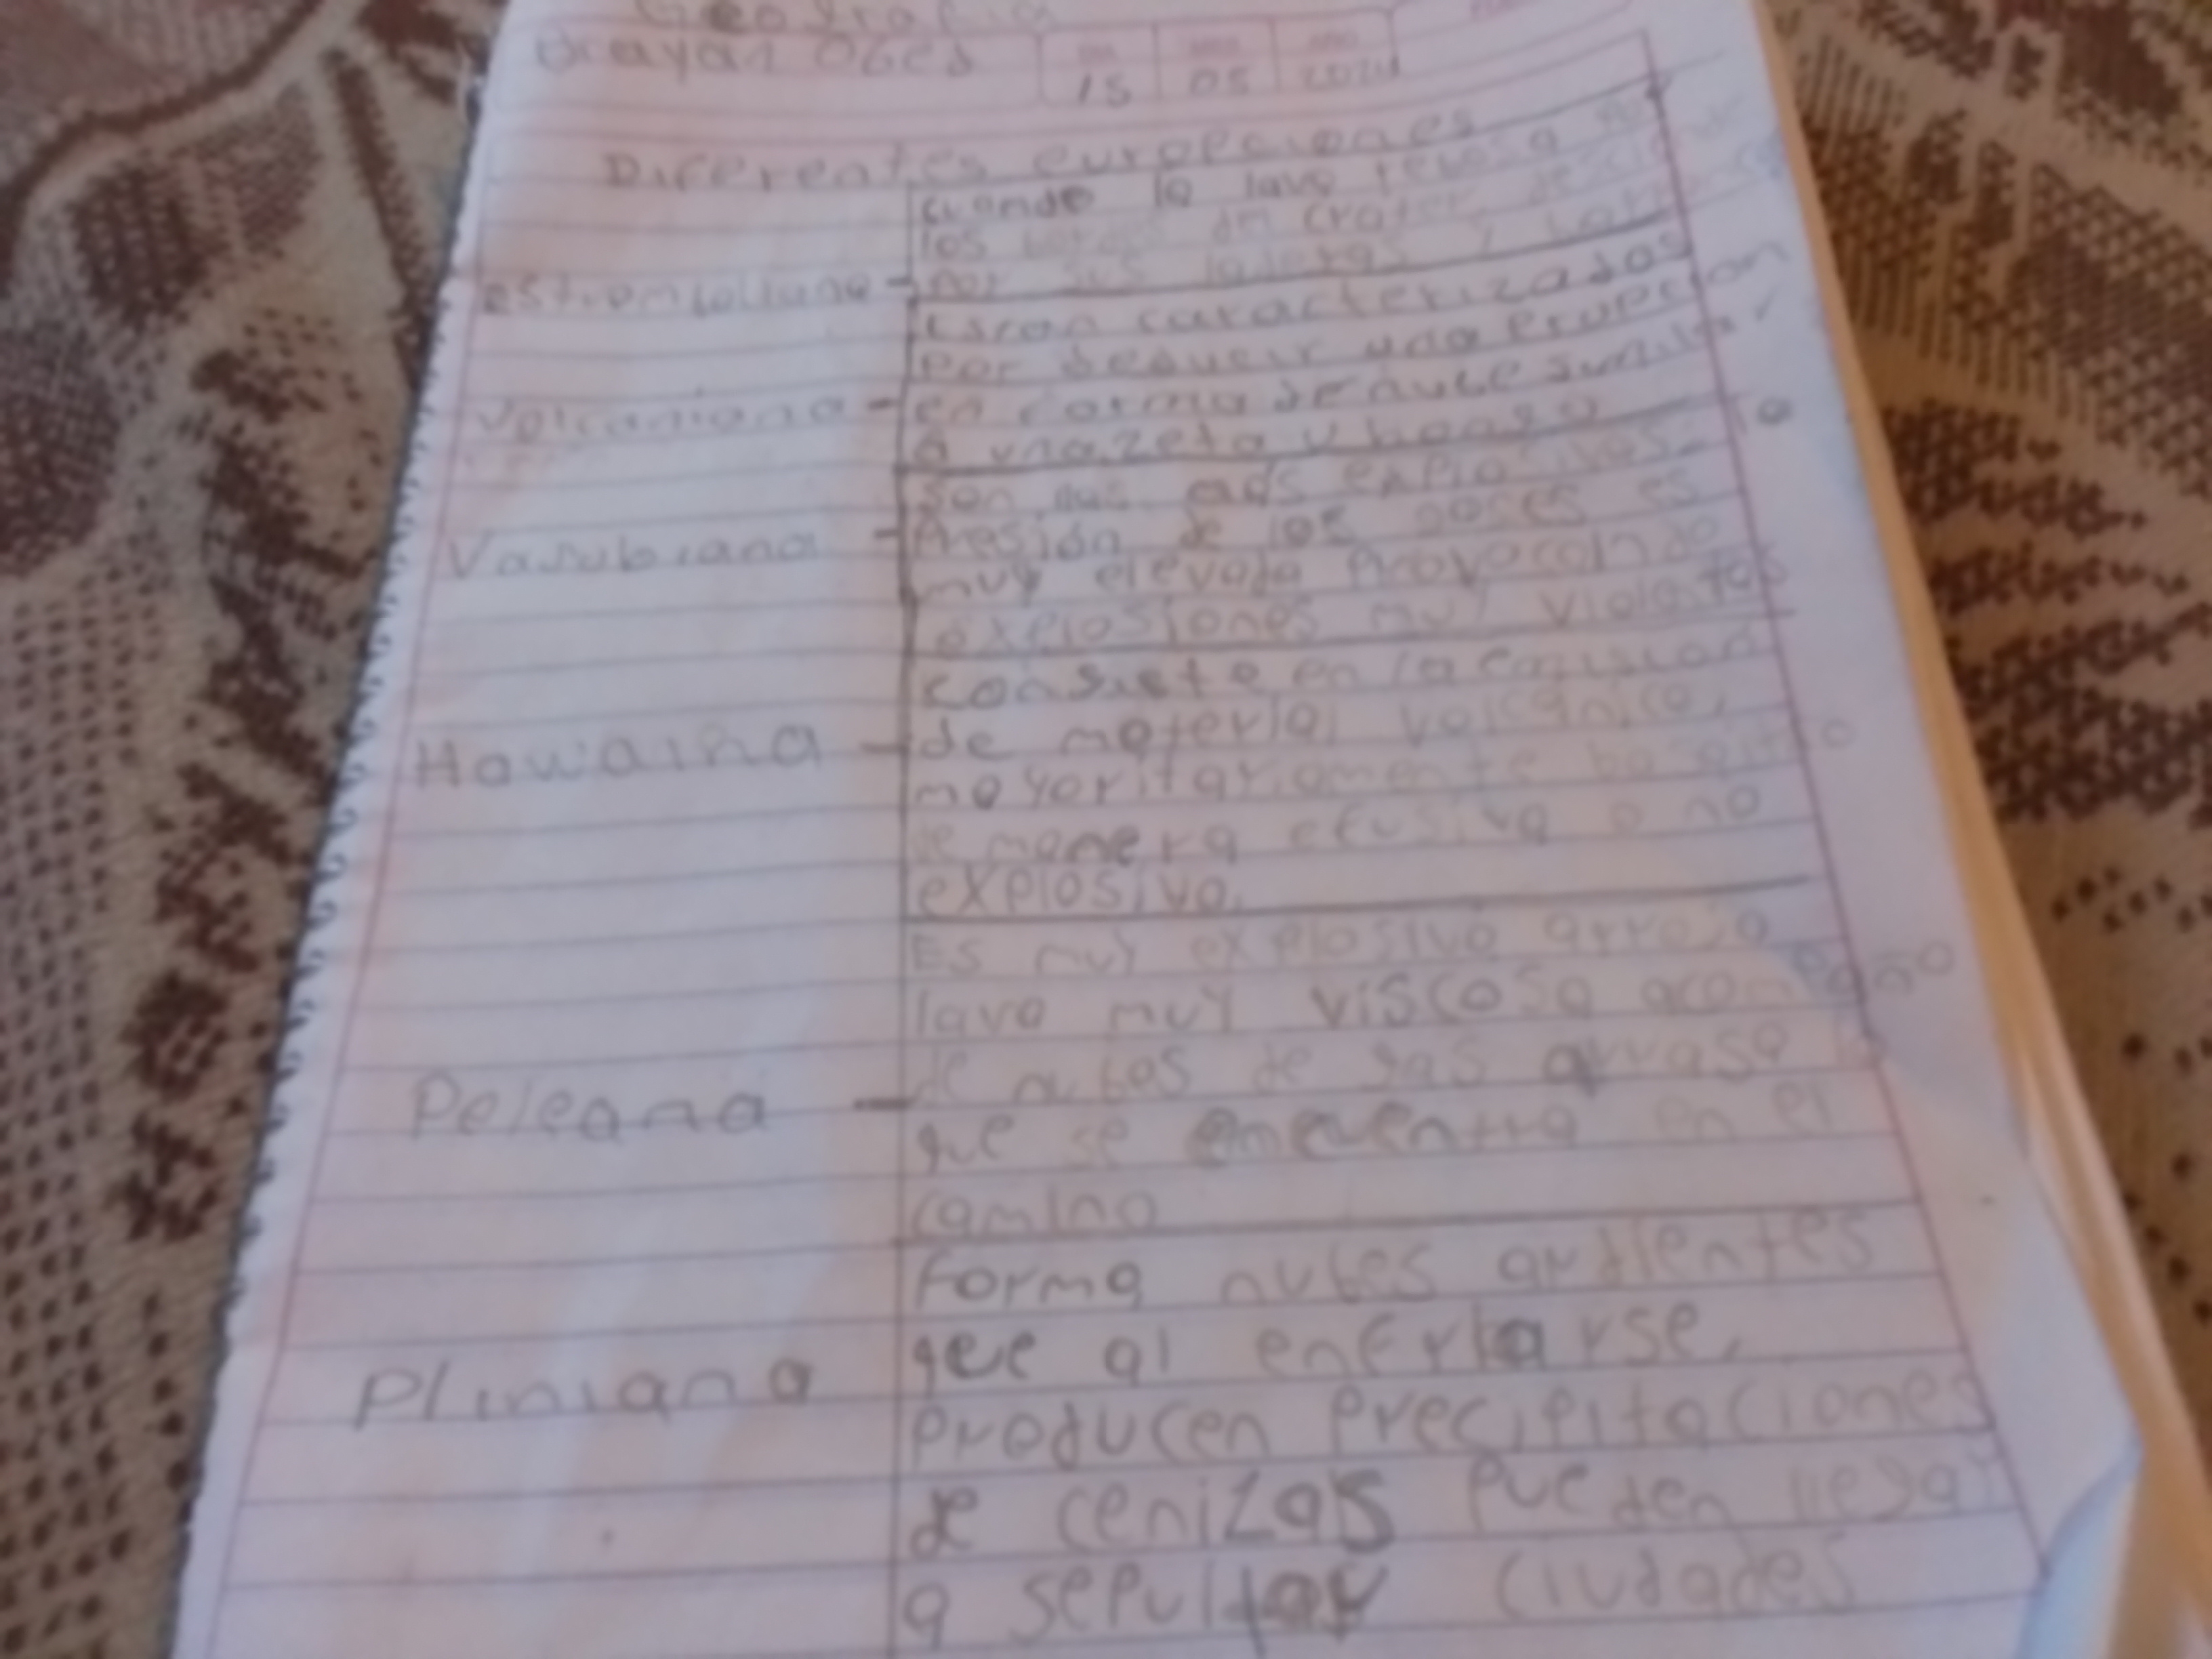 Geografia
Brayan Obed
DIA MES AÑO
15 05 2024
Diferentes europciones
cuando la lava rebosa
los bordes del crater, desciende
estromboliano - por sus laderas y
Esran caracterizados
por deducir una erupcion
volcaniana - en forma de nube similar
a una zeta u hongo
son mas explosivos: lo
Vasubiana - Presión de los gases es
muy elevada Provocando
explosiones muy violentas
consiste en la emisión
Hawaina - de material volcánico,
mayoritariamente basaltico
de manera efusiva o no
explosiva.
Es muy explosivo arroja
lava muy viscosa acompaña
de nubes de gas arrasa lo
Peleana -
que se encuentra en el
camino
Forma nubes ardientes
que al enfriarse,
Pliniana
producen precipitaciones
de cenizas pueden llegar
a sepultar ciudades